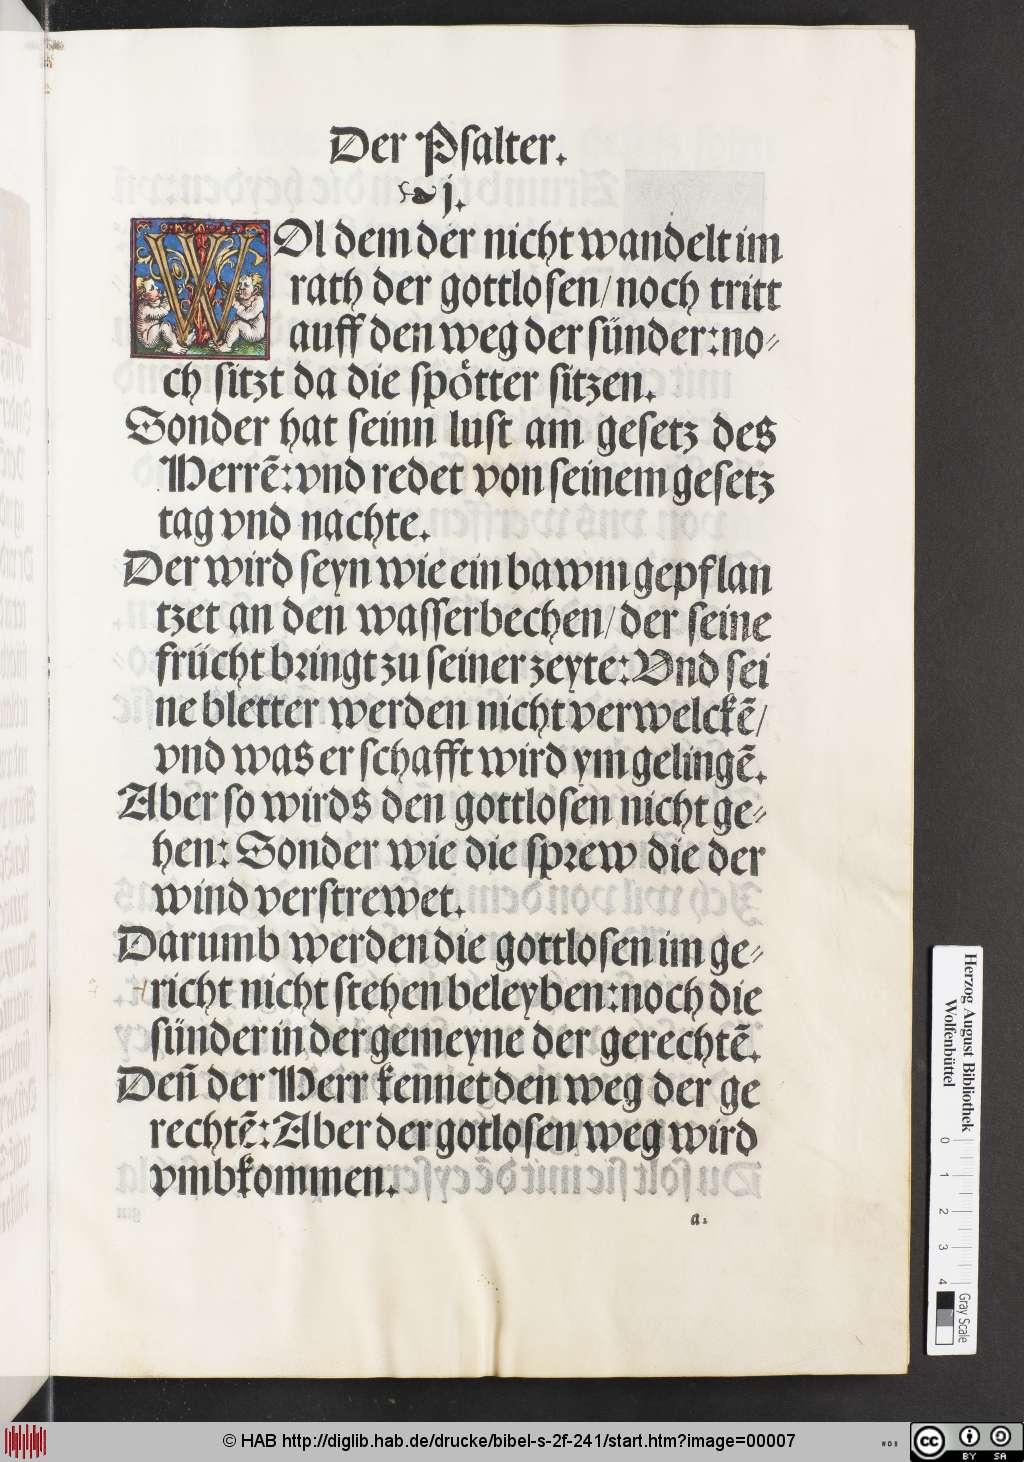 Der Psalter.
j.
WOl dem der nicht wandelt im
rath der gottlosen/noch tritt
auff den weg der sünder: no⸗
ch sitzt da die spötter sitzen.
Sonder hat seinn lust am gesetz des
Herrẽ: vnd redet von seinem gesetz
tag vnd nachte.
Der wird seyn wie ein bawm gepflan
tzet an den wasserbechen/der seine
früicht bringt zu seiner zeyte: Vnd sei
ne bletter werden nicht verwelckẽ/
vnd was er schafft wird ym gelingẽ.
Aber so wirds den gottlosen nicht ge⸗
hen: Sonder wie die sprew die der
wind verstrewet.
Darumb werden die gottlosen im ge⸗
richt nicht stehen beleyben: noch die
sünder in der gemeyne der gerechtẽ.
Deñ der Herr kennet den weg der ge
rechtẽ: Aber der gotlosen weg wird
vmbkommen.
a.
Herzog August Bibliothek
Wolfenbüttel
0 1 2 3 4
Gray Scale
© HAB http://diglib.hab.de/drucke/bibel-s-2f-241/start.htm?image=00007
WDB
cc BY SA